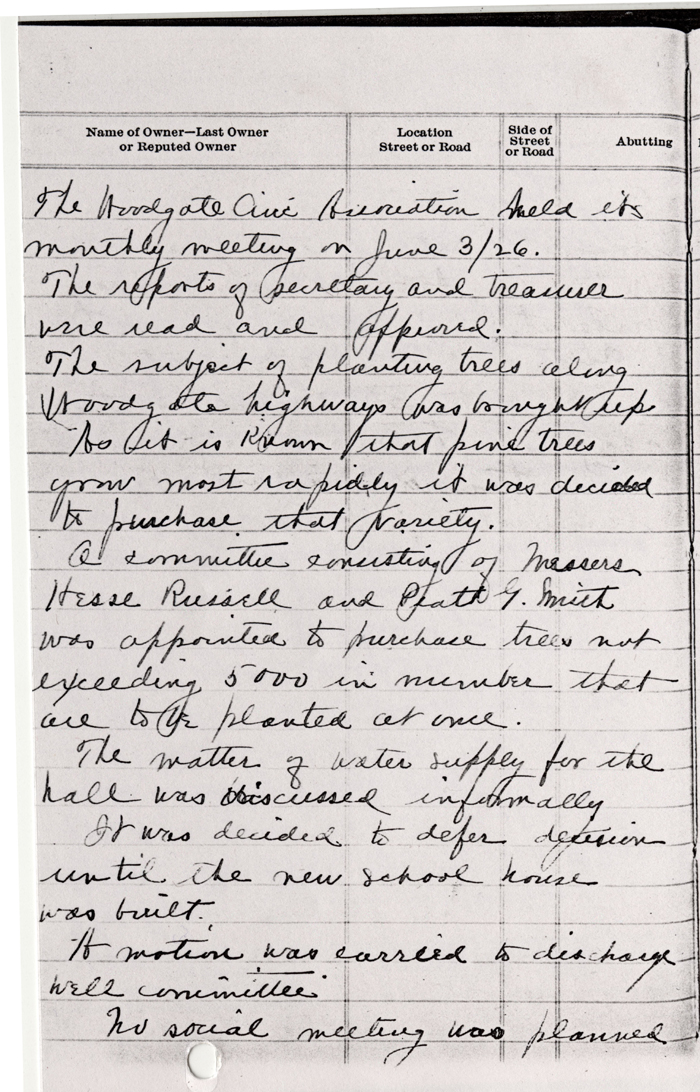 Name of Owner—Last Owner
or Reputed Owner
Location
Street or Road
Side of
Street
or Road
Abutting
The Woodgate Civic Association held its
monthly meeting on June 3/26.
The reports of secretary and treasurer
were read and approved.
The subject of planting trees along
Woodgate highways was brought up.
As it is known that pine trees
grow most rapidly it was decided
to purchase that variety.
A committee consisting of Messers
Hesse Russell and Pratt G. Smith
was appointed to purchase trees not
exceeding 5000 in number that
are to be planted at once.
The matter of water supply for the
hall was discussed informally
It was decided to defer decision
until the new school house
was built.
A motion was carried to discharge
well committee
No social meeting was planned